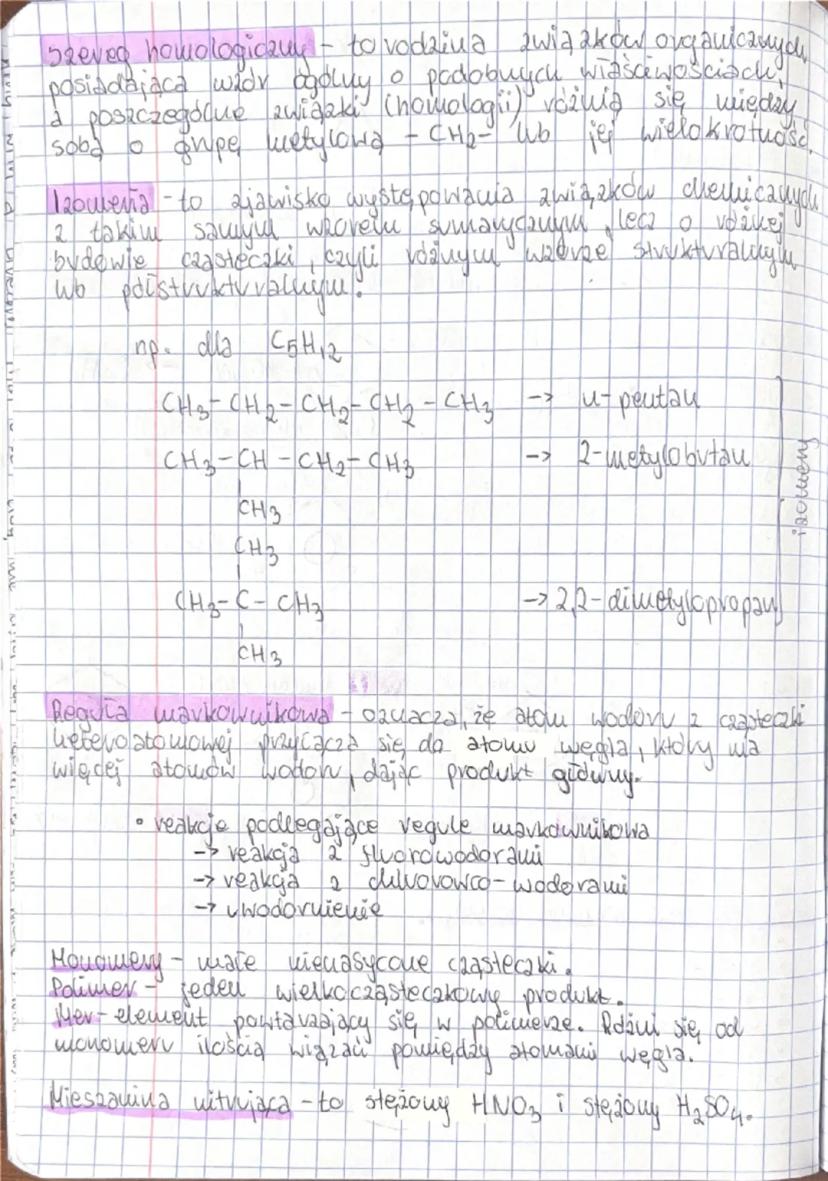 Szereg homologiczny - to rodzina związków organicznych,
posiadająca wzór ogólny o podobnych właściwościach,
a poszczególne związki (homologii) różnią się między
sobą o grupę metylową -CH2- lub jej wielokrotność.
Izomeria - to zjawisko występowania związków chemicznych
z takim samym wzorem sumarycznym, lecz o różnej
budowie cząsteczki, czyli różnym wzorze strukturalnym
lub półstrukturalnym.
np. dla C5H12
CH3-CH2-CH2-CH2-CH3 -> n-pentan
CH3-CH-CH2-CH3 -> 2-metylobutan
CH3
CH3
CH3-C-CH3 -> 2,2-dimetylopropan
CH3
izomery
Reguła markownikowa - oznacza, że atom wodoru z cząsteczki
heteroatomowej przyłącza się do atomu węgla, który ma
więcej atomów wodoru, dając produkt główny.
• reakcje podlegające regule markownikowa
-> reakcja z fluorowodorami
-> reakcja z chlorowco-wodorami
-> uwodornienie
Monomery - małe nienasycone cząsteczki.
Polimer - jeden wielkocząsteczkowy produkt.
Mer - element powtarzający się w polimerze. Różni się od
monomeru ilością wiązań pomiędzy atomami węgla.
Mieszanina nitrująca - to stężony HNO3 i stężony H2SO4.